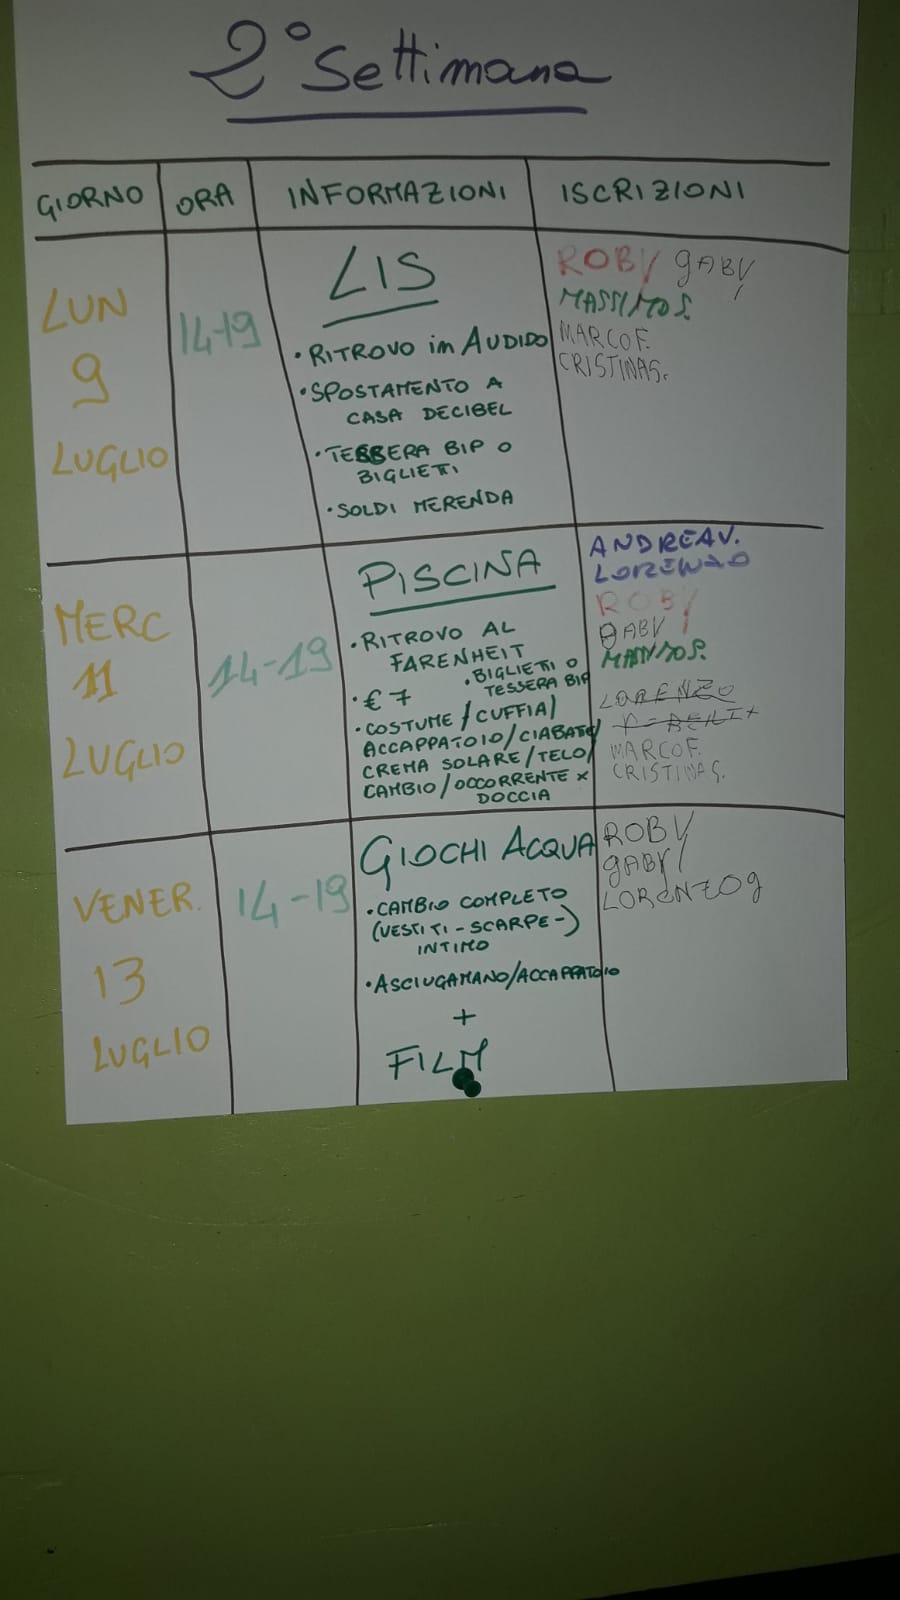 2° Settimana
GIORNO ORA INFORMAZIONI ISCRIZIONI
LUN
9
LUGLIO
14-19
LIS
• RITROVO in AUDIDO
• SPOSTAMENTO A
CASA DECIBEL
• TESSERA BIP O
BIGLIETTI
• SOLDI MERENDA
ROBY GABY
MASSIMO S.
MARCO F.
CRISTINA S.
MERC
11
LUGLIO
14-19
PISCINA
• RITROVO AL
FARENHEIT
• BIGLIETTI O
TESSERA BIP
• € 7
• COSTUME / CUFFIA /
ACCAPPATOIO / CIABATE /
CREMA SOLARE / TELO /
CAMBIO / OCCORRENTE x
DOCCIA
ANDREA V.
ROBY
GABY
LORENZO
MARCO F.
CRISTINA S.
VENER.
13
LUGLIO
14-19
GIOCHI ACQUA
• CAMBIO COMPLETO
(VESTITI - SCARPE -)
INTIMO
• ASCIUGAMANO/ACCAPPATOIO
+
FILM
ROBY
GABY
LORENZO G